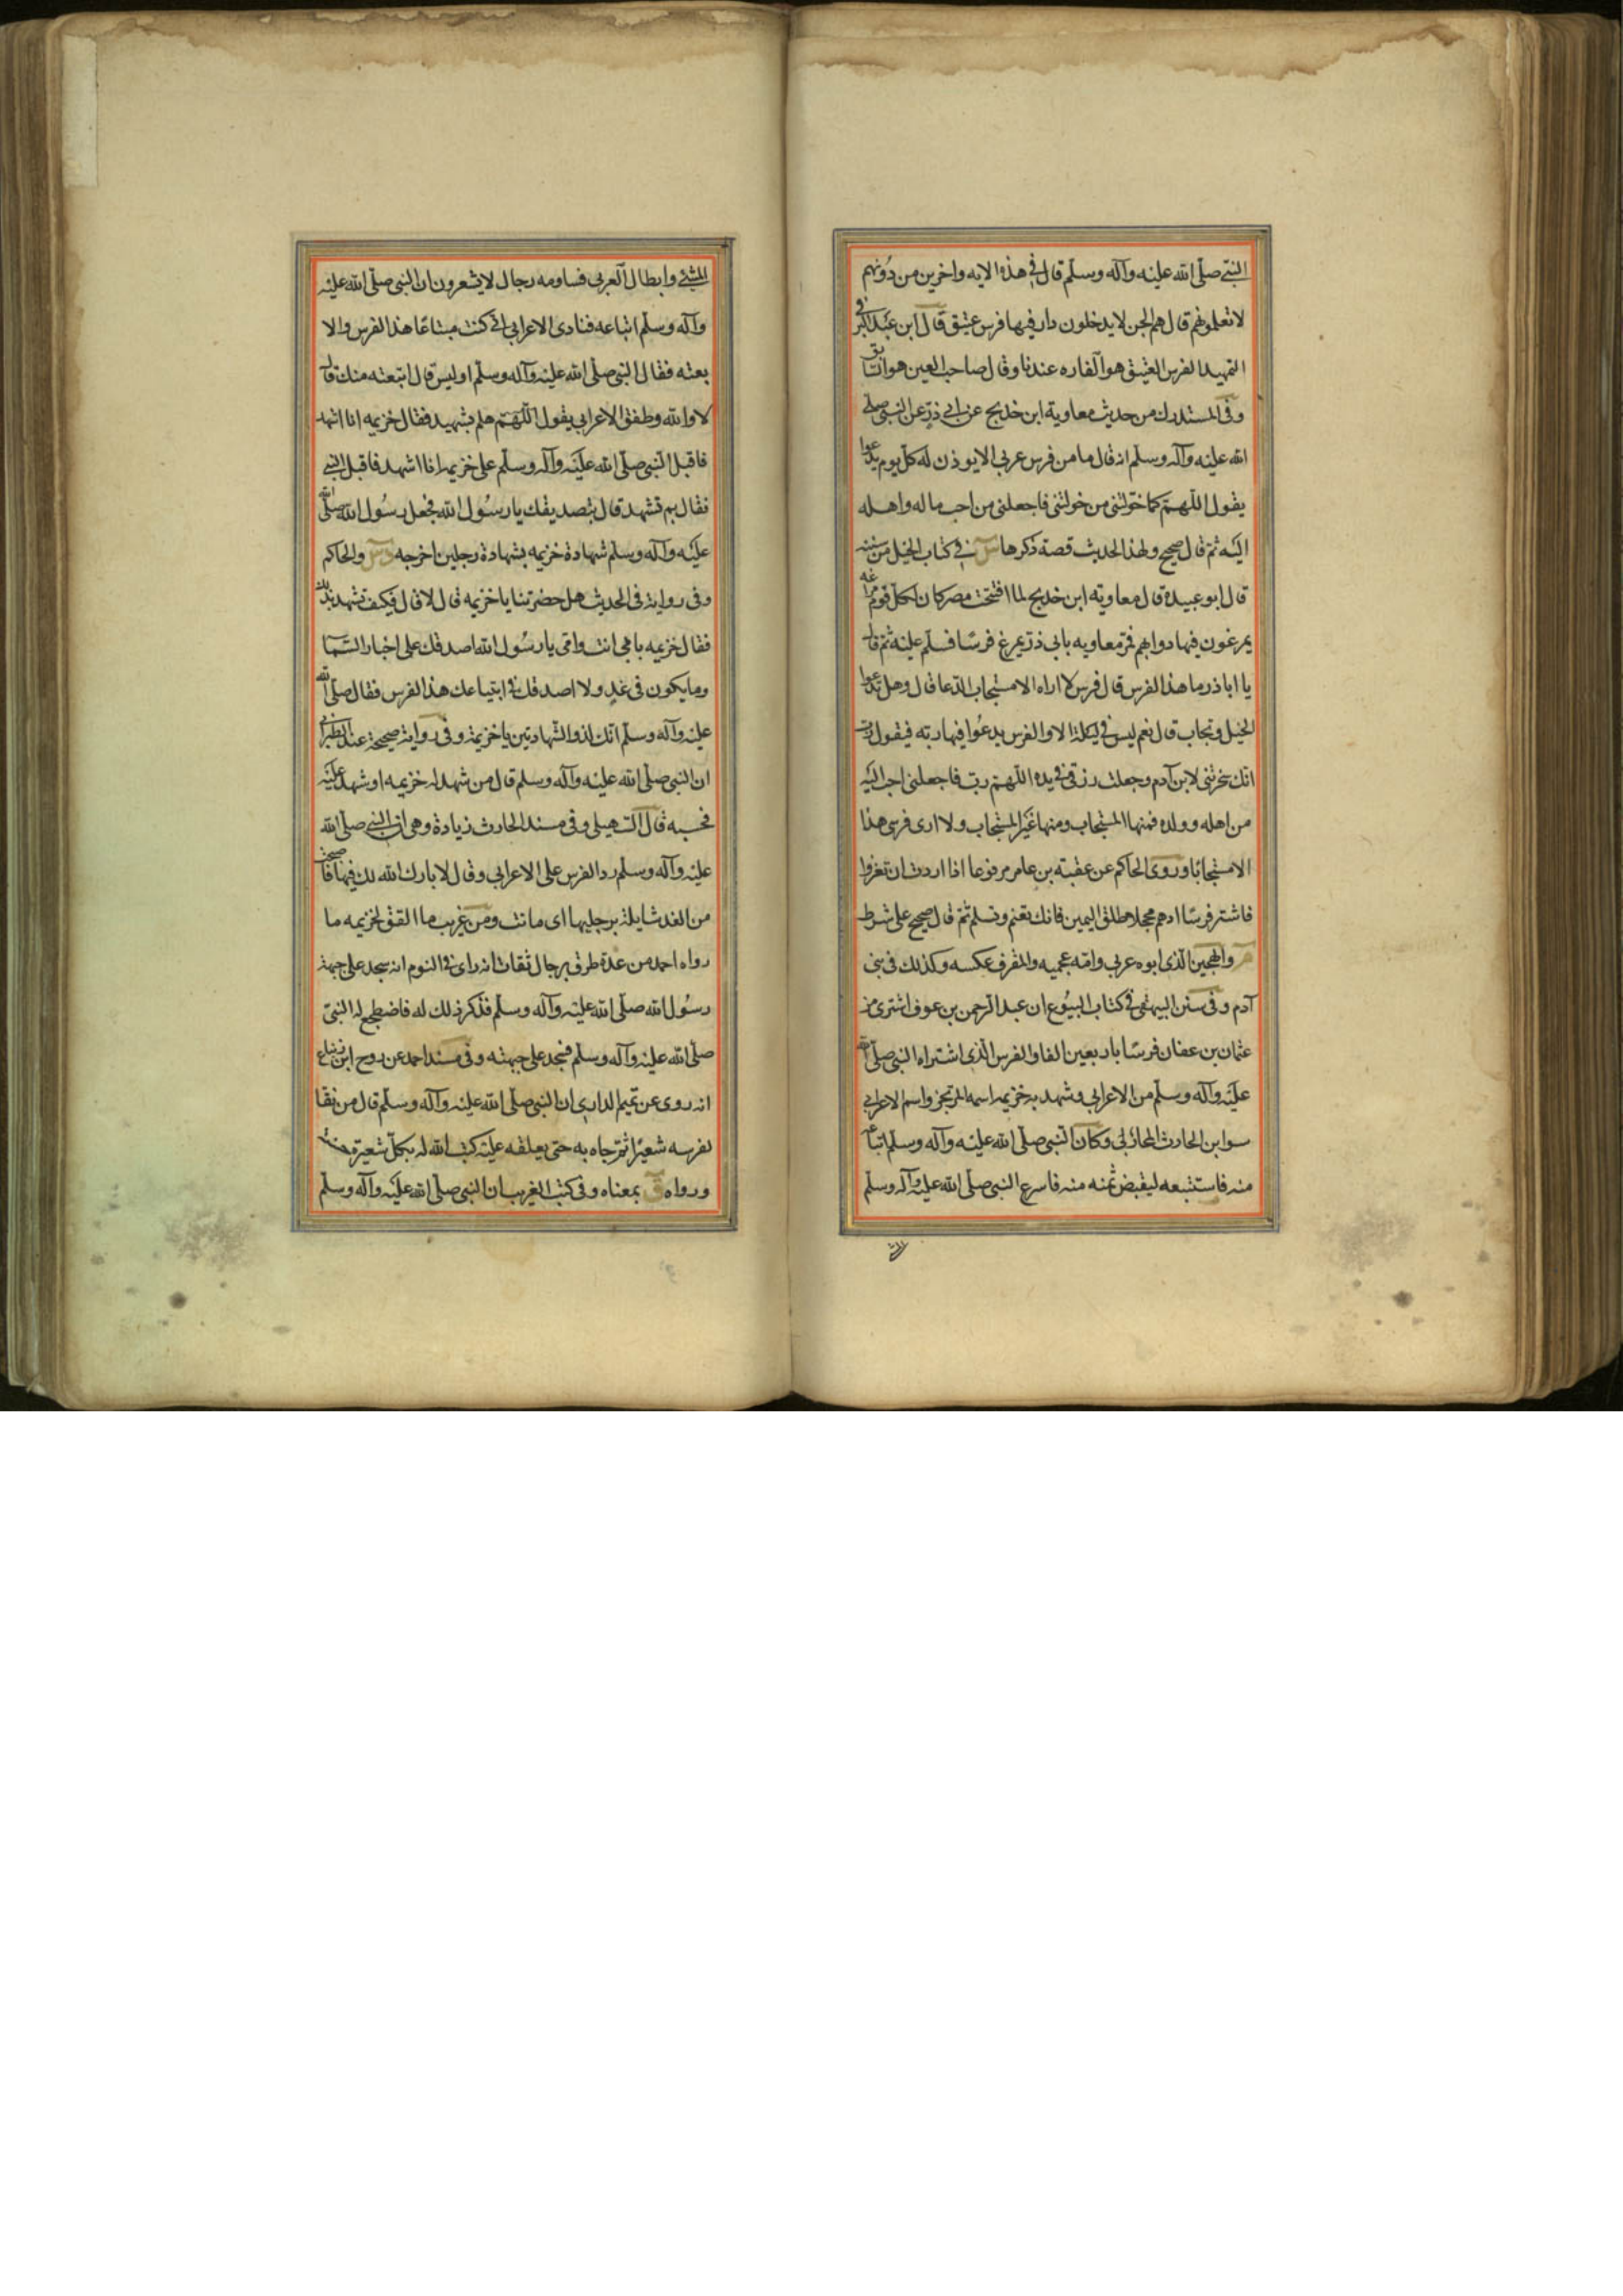 النبي صلى الله عليه وآله وسلم قال في هذه الايه واخرين من دونهم
لا تعلمونهم قال هم الجن لا يدخلون دار فيها فرس عتيق قال ابن عبد البر في
التمهيد الفرس العتيق هو الفاره عندنا وقال صاحب العين هو السابق
وفي المستدرك من حديث معاوية ابن خديج عن ابي ذر عن النبي صلى
الله عليه وآله وسلم انه قال ما من فرس عربي الا يوذن له كل يوم يدعوا
يقول اللهم كما خولتني من خولتني فاجعلني من احب ماله واهله
اليه ثم قال صحيح ولهذا الحديث قصة ذكرها س في كتاب الخيل من سننه
قال ابو عبيدة قال معاوية ابن خديج لما افتتحت مصر كان لكل قوم مراغه
يمرغون فيها دوابهم فمر معاويه بابي ذر يمرغ فرسا فسلم عليه ثم قال
يا اباذر ما هذا الفرس قال فرس لا اراه الا مستجاب الدعا قال وهل تدعوا
الخيل وتجاب قال نعم ليس في ليلة الا والفرس يدعوا فيها ربه فيقول رب
انك سخرتني لابن آدم وجعلت رزقي في يده اللهم رب فاجعلني احب اليه
من اهله وولده فمنها المستجاب ومنها غير المستجاب ولا ارى فرسي هذا
الا مستجابا وروى الحاكم عن عقبة بن عامر مرفوعا اذا اردت ان تغزوا
فاشتر فرسا ادهم محجلا مطلق اليمين فانك تغنم وتسلم ثم قال صحيح على شرط
م والهجين الذي ابوه عربي وامه عجميه والمقرف عكسه وكذلك في بني
آدم وفي سنن البيهقي في كتاب البيوع ان عبد الرحمن بن عوف اشترى من
عثمان بن عفان فرسا باربعين الفا والفرس الذي اشتراه النبي صلى الله
عليه وآله وسلم من الاعرابي وشهد به خزيمه اسمه المرتجز واسم الاعرابي
سوا بن الحارث المحاربي وكان النبي صلى الله عليه وآله وسلم ابتاعه
منه فاستتبعه ليقبض ثمنه منه فاسرع النبي صلى الله عليه وآله وسلم
المشي وابطا الاعرابي فساومه رجال لا يشعرون ان النبي صلى الله عليه
وآله وسلم ابتاعه فنادى الاعرابي ان كنت مبتاعا هذا الفرس والا
بعته فقال النبي صلى الله عليه وآله وسلم اوليس قال ابتعته منك قال
لا والله وطفق الاعرابي يقول اللهم هلم بشهيد فقال خزيمه انا اشهد
فاقبل النبي صلى الله عليه وآله وسلم على خزيمه انا اشهد فاقبل النبي
فقال بم تشهد قال بتصديقك يا رسول الله فجعل رسول الله صلى الله
عليه وآله وسلم شهادة خزيمه بشهادة رجلين اخرجه د س والحاكم
وفي رواية في الحديث هل حضرتنا يا خزيمه قال لا قال فكيف تشهد بذلك
فقال خزيمه بابي انت وامي يا رسول الله اصدقك على اخبار السما
وما يكون في غد ولا اصدقك في ابتياعك هذا الفرس فقال صلى الله
عليه وآله وسلم انك لذو الشهادتين يا خزيمة وفي رواية صحيحة عند الطبراني
ان النبي صلى الله عليه وآله وسلم قال من شهد له خزيمه او شهد عليه
فحسبه قال السهيلي وفي مسند الحارث زيادة وهي ان النبي صلى الله
عليه وآله وسلم رد الفرس على الاعرابي وقال لا بارك الله لك فيها فاصبحت
من الغد شايلة برجليها اى ماتت ومن غريب ما اتفق لخزيمه ما
رواه احمد من عدة طرق برجال ثقات انه راى في النوم انه سجد على جبهة
رسول الله صلى الله عليه وآله وسلم فذكر ذلك له فاضطجع له النبي
صلى الله عليه وآله وسلم فسجد على جبهته وفي مسند احمد عن روح ابن زنباع
انه روى عن تميم الداري ان النبي صلى الله عليه وآله وسلم قال من نقا
لفرسه شعيرا ثم جاه به حتى يعلفه عليه كتب الله له بكل شعيرة حسنة
ورواه ق بمعناه وفي كتب الغريب ان النبي صلى الله عليه وآله وسلم